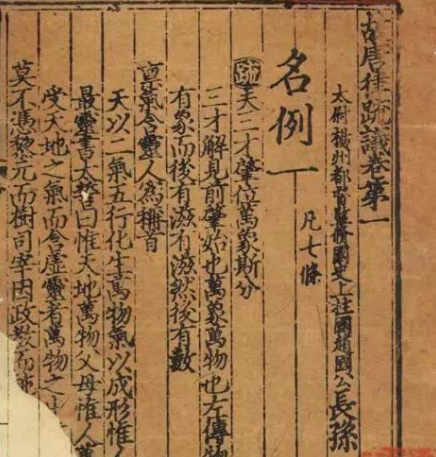 故唐律疏議卷第一
太尉揚州都督監修國史上柱國趙國公長孫
名例一 凡七條
疏夫三才肇位萬象斯分
三才解見前肇始也萬象萬物也左傳物
有象而後有滋有滋然後有數
稟氣含靈人為稱首
天以二氣五行化生萬物氣以成形惟人
最靈書太誓曰惟天地萬物父母惟人萬
受天地之氣而含虛靈者萬物之
莫不憑黎元而樹司宰因政教而